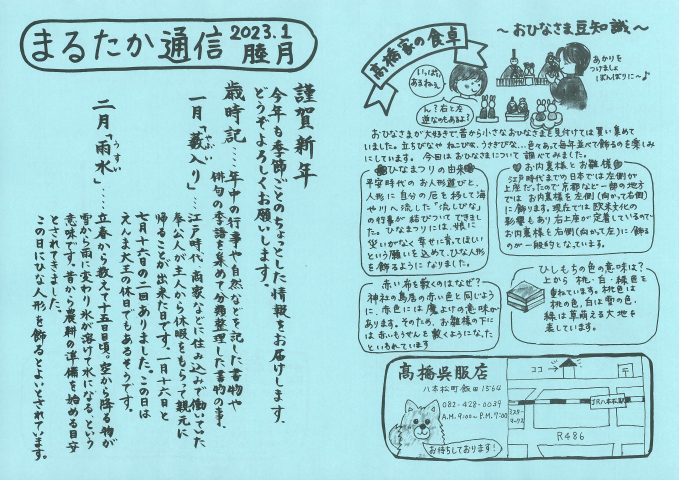 まるたか通信 2023.1 睦月
謹賀新年
今年も季節ごとのちょっとした情報をお届けします。
どうぞよろしくお願いします。
歳時記…年中の行事や自然などを記した書物や
俳句の季語を集めて分類整理した書物の事。
一月「藪入り」…江戸時代、商家などに住み込みで働いていた
やぶい
奉公人が主人から休暇をもらって親元に
帰ることが出来た日です。一月十六日と
七月十六日の二回ありました。この日は
えんま大王の休日でもあるそうです。
二月「雨水」…立春から数えて十五日頃。空から降る物が
うすい
雪から雨に変わり氷が溶けて水になる、という
意味です。昔から農耕の準備を始める目安
とされてきました。
この日にひな人形を飾るとよいとされています。
髙橋家の食卓
〜おひなさま豆知識〜
いっぱい
あるねぇ
ん?右と左
逆なのもあるよ?
あかりを
つけましょ
ぼんぼりに〜♪
おひなさまが大好きで、昔から小さなおひなさまを見付けては買い集めて
いました。立ちびなや ねこびな、うさぎびな…色々あって毎年並べて飾るのを楽しみ
にしています。今回はおひなさまについて調べてみました。
ひなまつりの由来
平安時代のお人形遊びと、
人形に自分の厄を移して海
や川へ流した「流しびな」
の行事が結びついてできま
した。ひなまつりには、娘に
災いがなく幸せに育ってほしい
という願いを込めて、ひな人形
を飾るようになりました。
お内裏様とお雛様
江戸時代までの日本では左側が
上座だったので京都など一部の地方
ではお内裏様を左側(向かって右側)
に飾ります。現在では欧米文化の
影響もあり右上座が定着しているので
お内裏様を右側(向かって左)に飾る
のが一般的となっています。
赤い布を敷くのはなぜ?
神社の鳥居の赤い色と同じよう
に、赤色には魔よけの意味が
あります。そのため、お雛様の下に
は赤いもうせんを敷くようになった
といわれています
ひしもちの色の意味は?
上から 桃・白・緑色を
重ねています。桃色は
桃の色、白は雪の色、
緑は草萌える大地を
表しています。
髙橋呉服店
八本松町飯田1564
082-428-0039
A.M.9:00〜P.M.7:00
お待ちしております!
ココ→
〒
JR八本松駅
R486